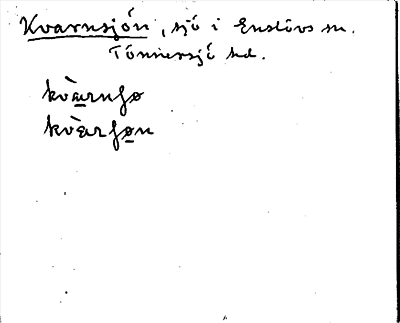 Kvarnsjön, sjö i Enslövs sn.
Tönnersjö hd.
kvær̀nʃø
kvæ̀rʃøn